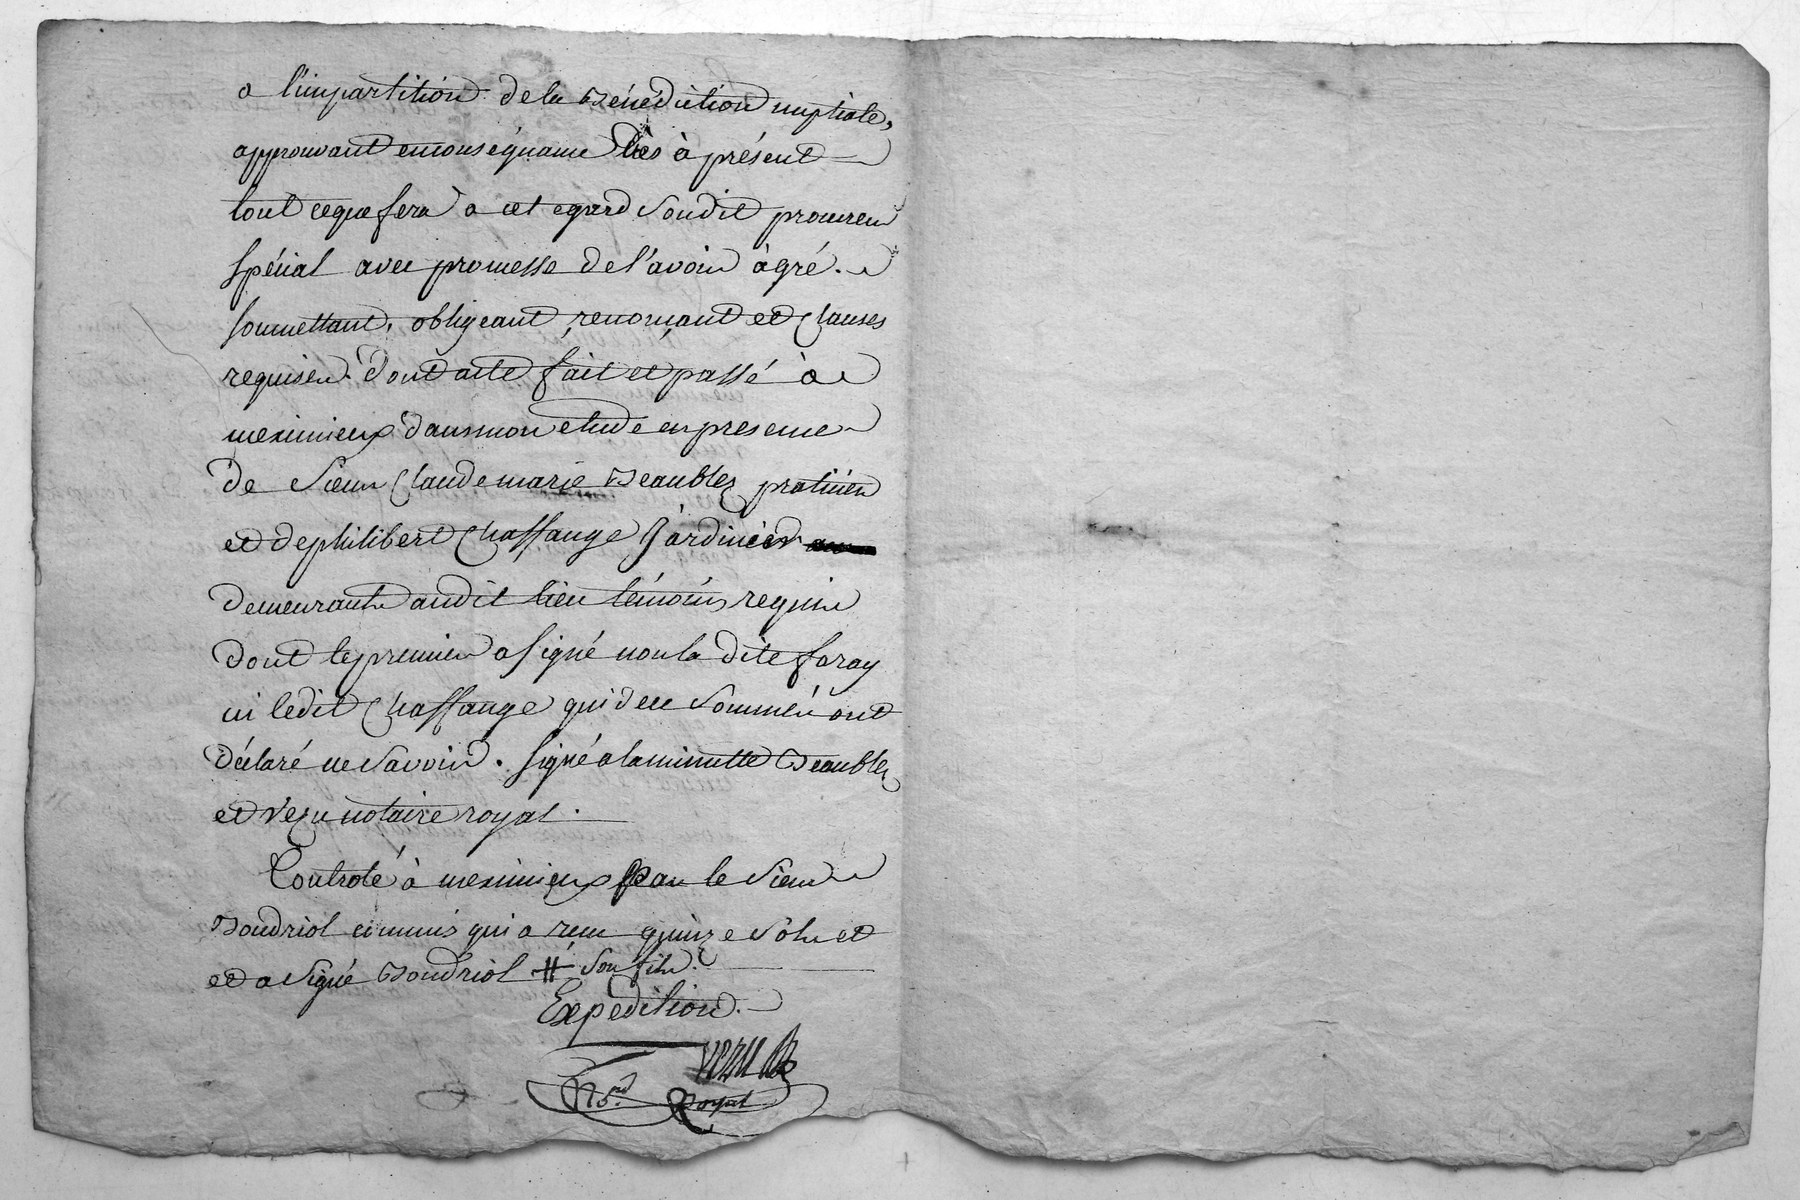 a l'impartition de la Bénédiction nuptiale,
approuvant en conséquance dès à présent
tout ceque fera a cet egard Son dit procureur
spécial avec promesse de l'avoir à gré.
soumettant, obligeant, renonçant et Clauses
requises. Dont acte fait et passé à
meximieux dans mon etude en presence
de Sieur Claude marie Beaublez praticien
et de philibert Chaffange Jardinier
demeurants audit lieu témoins requis
dont le premier a signé non la dite foray
ni ledit Chaffange qui de ce Sommés ont
déclaré ne Savoir. signé a la minutte Beaublez
et Vezu notaire royal.
Controlé à meximieux par le Sieur
Boudriol commis qui a recu quinze Sols et
et a Signé Boudriol # Son fils.
Expedition.
Vezu
No.re Royal